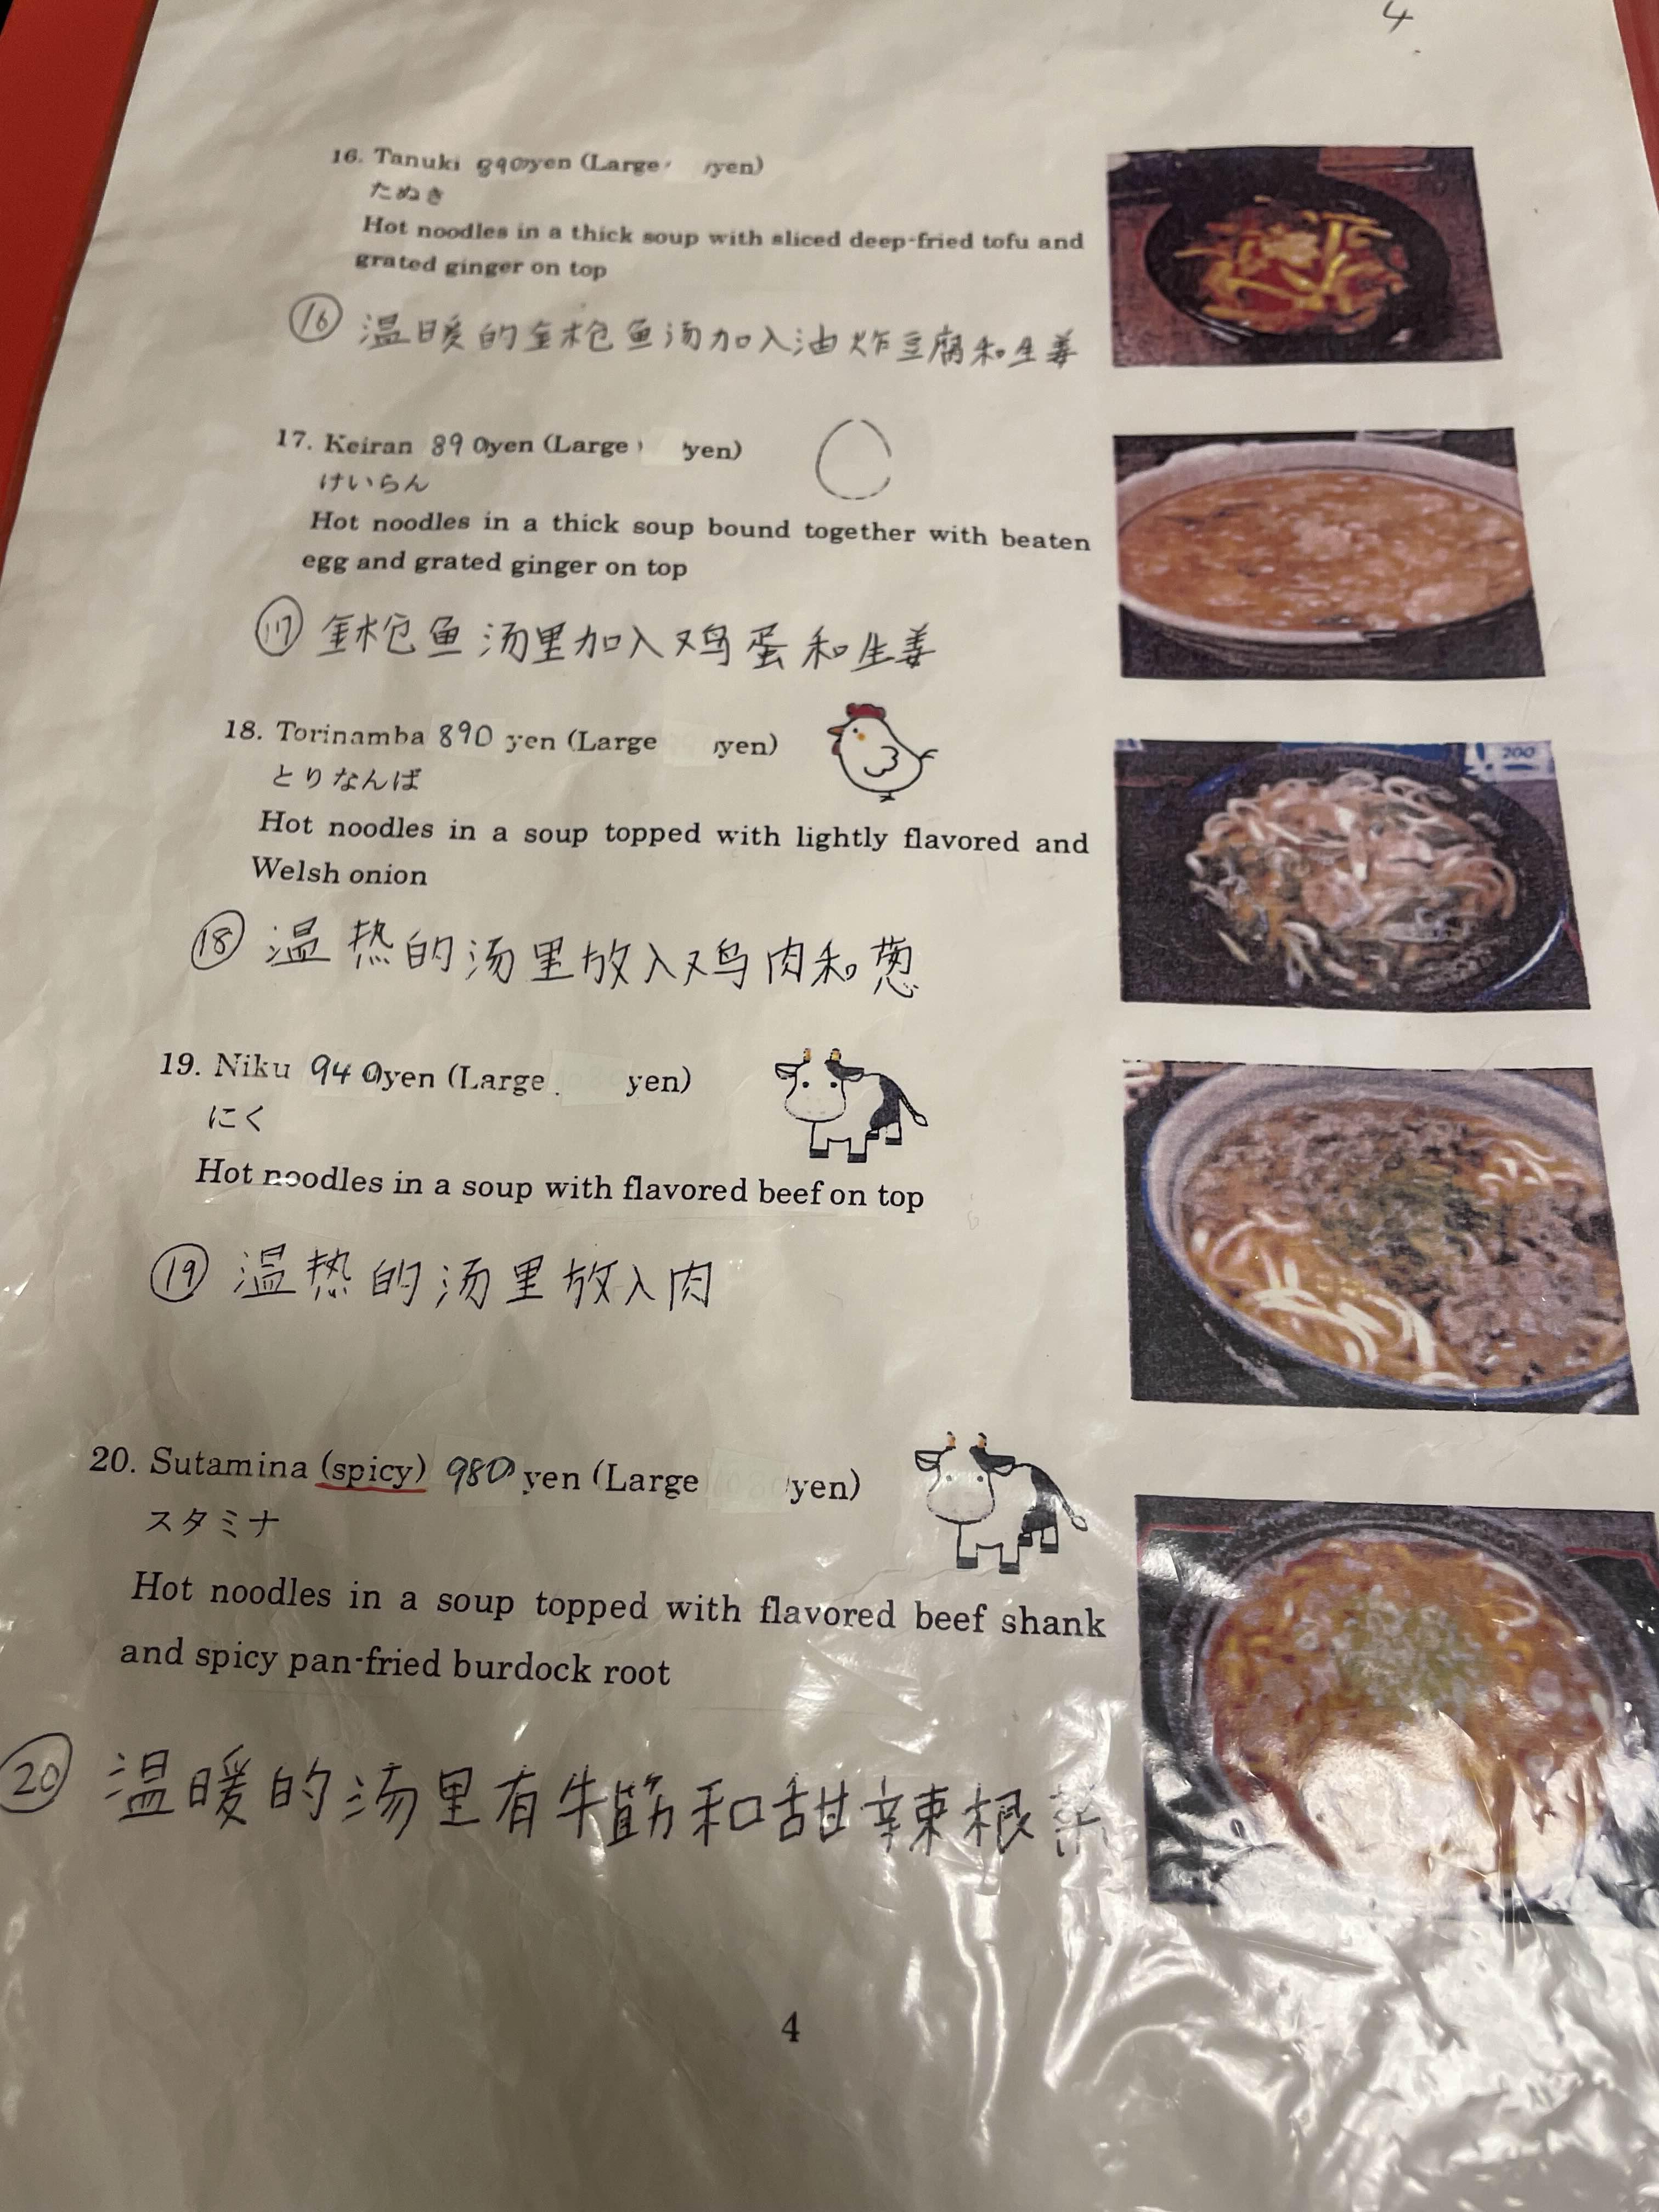 4
16. Tanuki 890yen (Large yen)
たぬき
Hot noodles in a thick soup with sliced deep-fried tofu and
grated ginger on top
⑯ 温暖的金枪鱼汤加入油炸豆腐和生姜
17. Keiran 890yen (Large yen)
けいらん
Hot noodles in a thick soup bound together with beaten
egg and grated ginger on top
⑰ 金枪鱼汤里加入鸡蛋和生姜
18. Torinamba 890 yen (Large yen)
とりなんば
Hot noodles in a soup topped with lightly flavored and
Welsh onion
⑱ 温热的汤里放入鸡肉和葱
200
19. Niku 940yen (Large yen)
にく
Hot noodles in a soup with flavored beef on top
⑲ 温热的汤里放入肉
20. Sutamina (spicy) 980 yen (Large yen)
スタミナ
Hot noodles in a soup topped with flavored beef shank
and spicy pan-fried burdock root
⑳ 温暖的汤里有牛筋和甜辣根菜
4